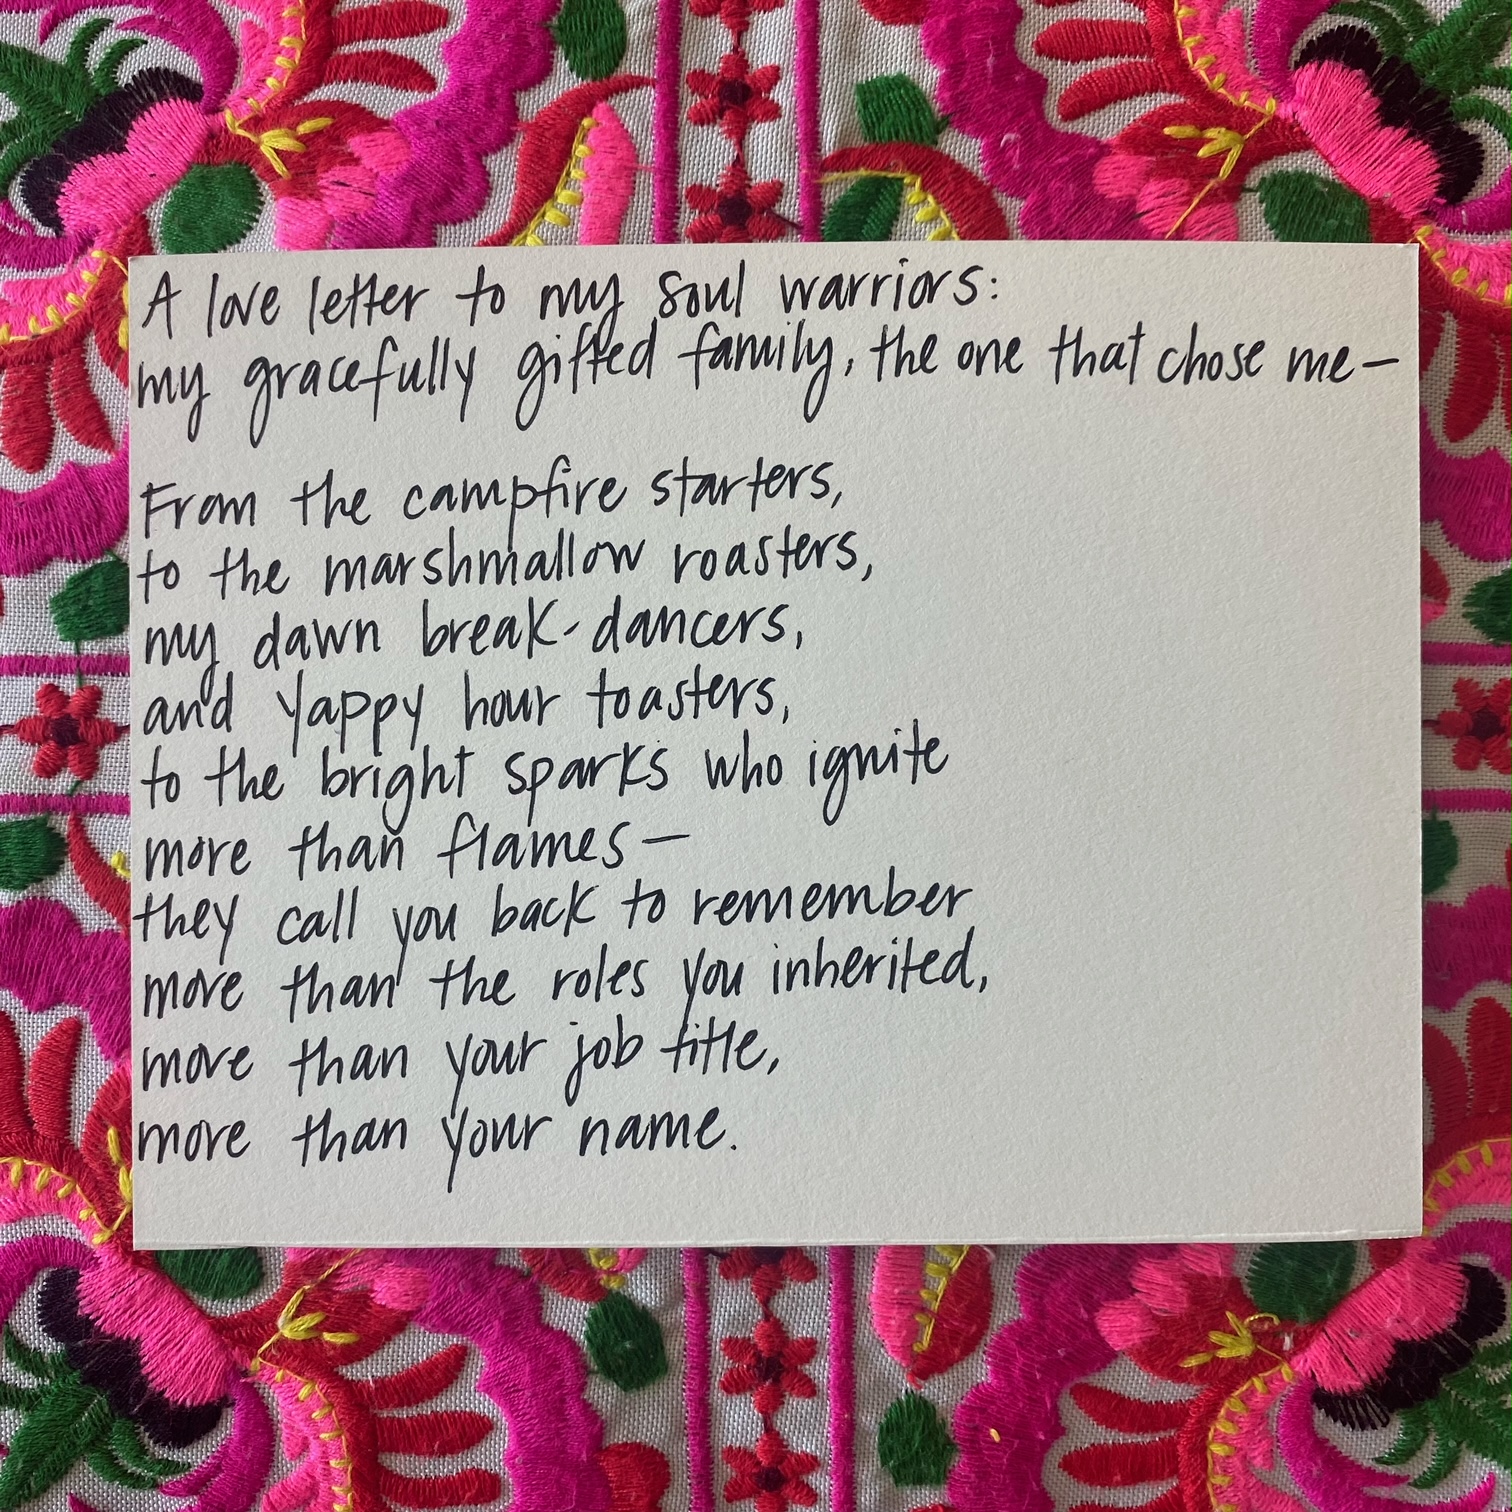 A love letter to my soul warriors:
my gracefully gifted family, the one that chose me—
From the campfire starters,
to the marshmallow roasters,
my dawn break-dancers,
and yappy hour toasters,
to the bright sparks who ignite
more than flames—
they call you back to remember
more than the roles you inherited,
more than your job title,
more than your name.